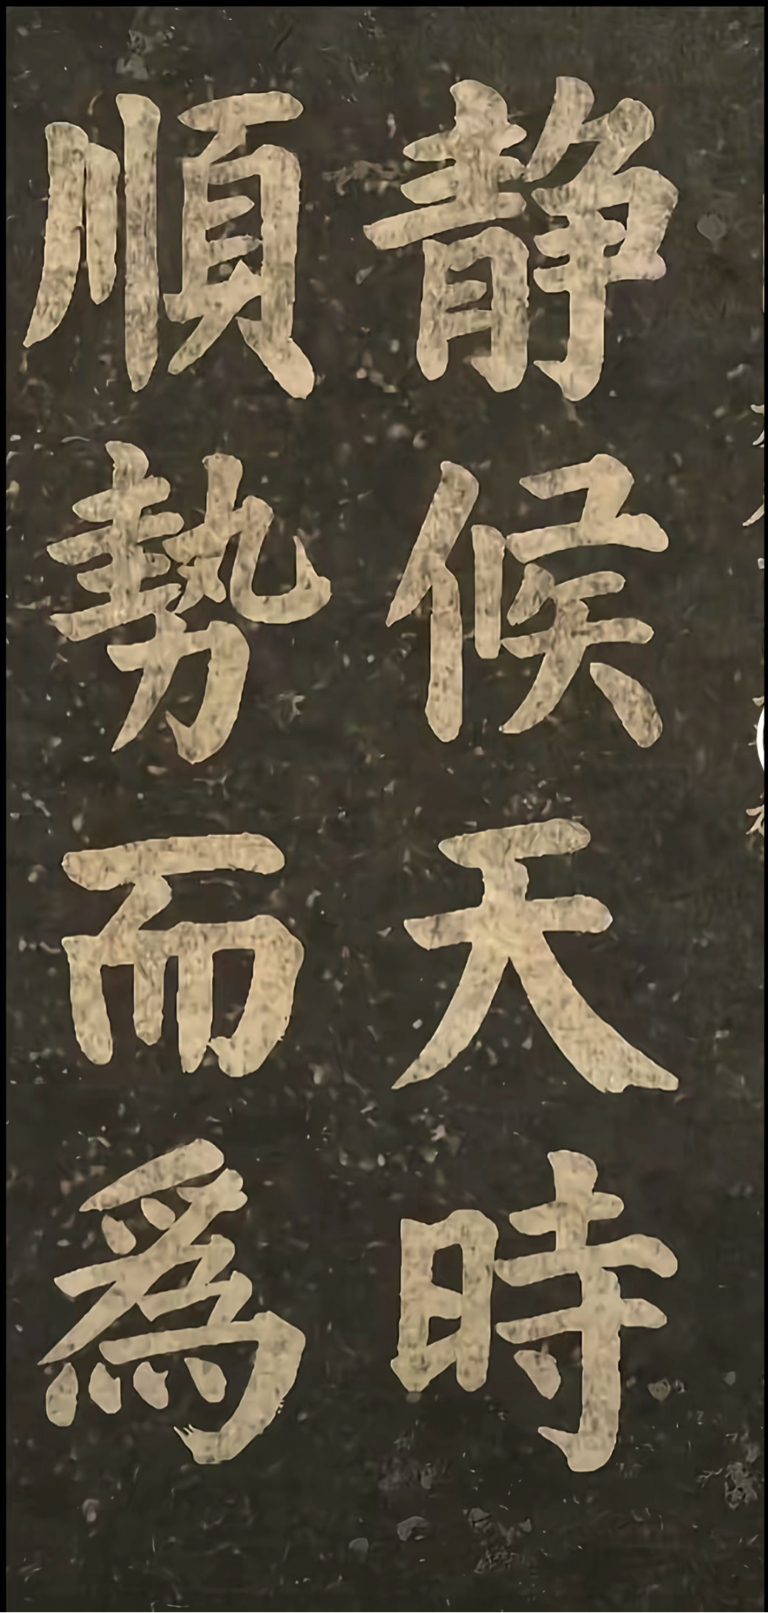 静候天時
順勢而為